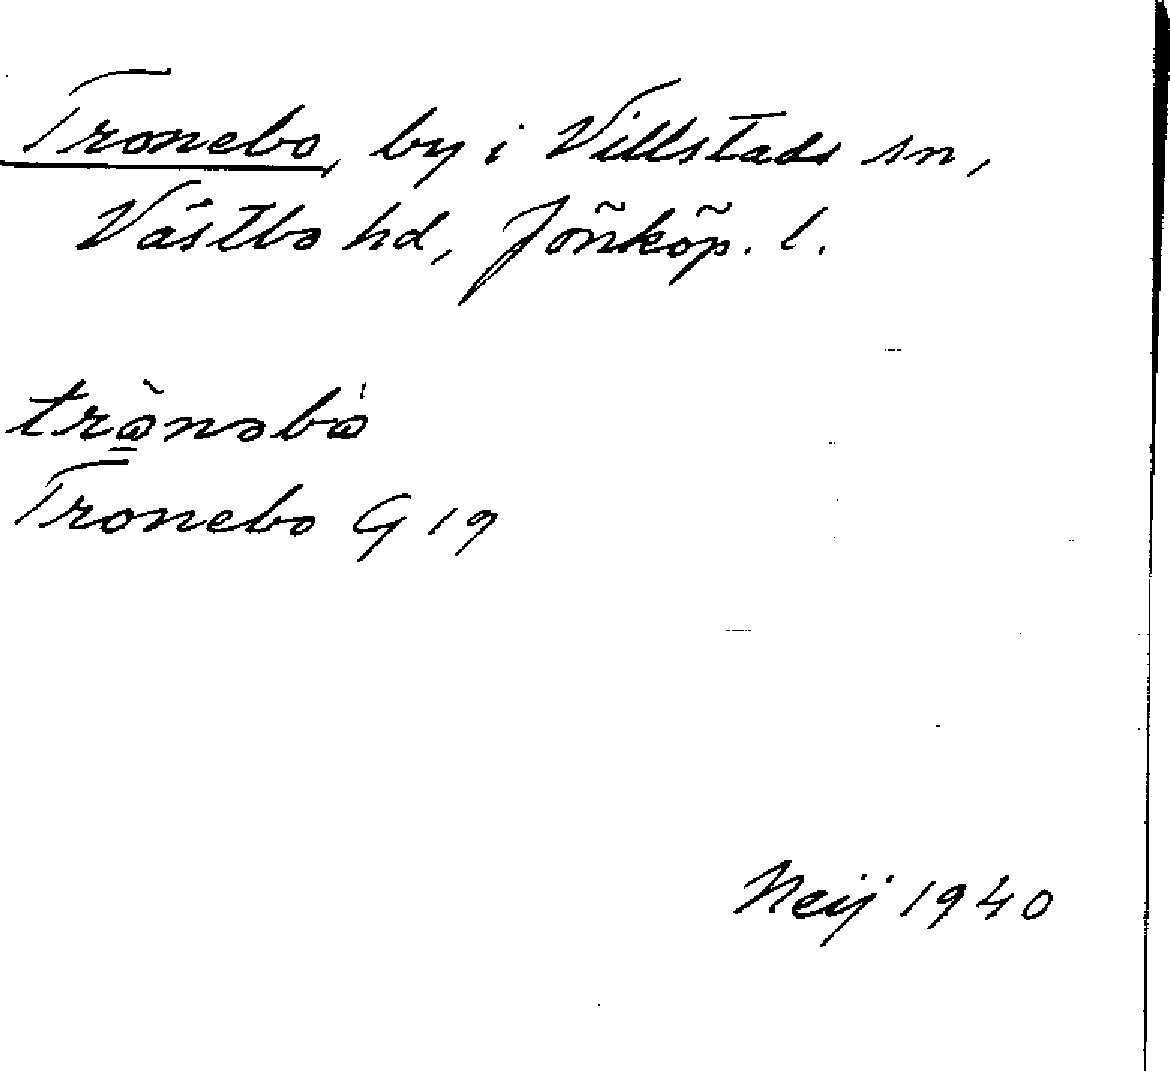 Tronebo, by i Villstads sn,
Västbo hd, Jönköp. l.
trɷ̀nəbɷ̍
Tronebo G 19
Neij 1940